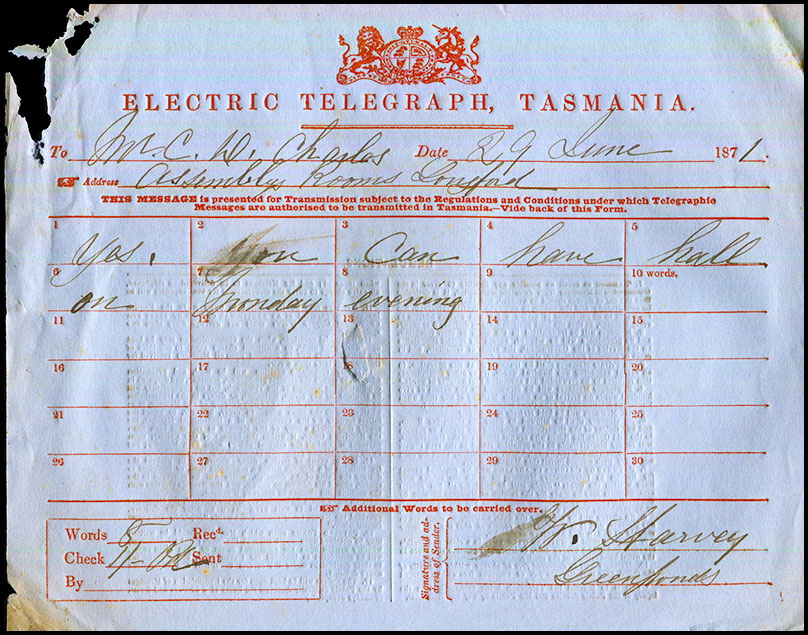 ELECTRIC TELEGRAPH, TASMANIA.
To Mr. C. D. Charles Date 29 June 1871.
Address Assembly Rooms Longford
THIS MESSAGE is presented for Transmission subject to the Regulations and Conditions under which Telegraphic
Messages are authorised to be transmitted in Tasmania.—Vide back of this Form.
1 2 3 4 5
Yes. You Can have hall
6 7 8 9 10 words.
on Monday evening
11 12 13 14 15
16 17 18 19 20
21 22 23 24 25
26 27 28 29 30
Additional Words to be carried over.
Words 8 Recd.
Check 1/- Pd Sent
By
Signature and ad-
dress of Sender.
W. Harvey
Greenponds